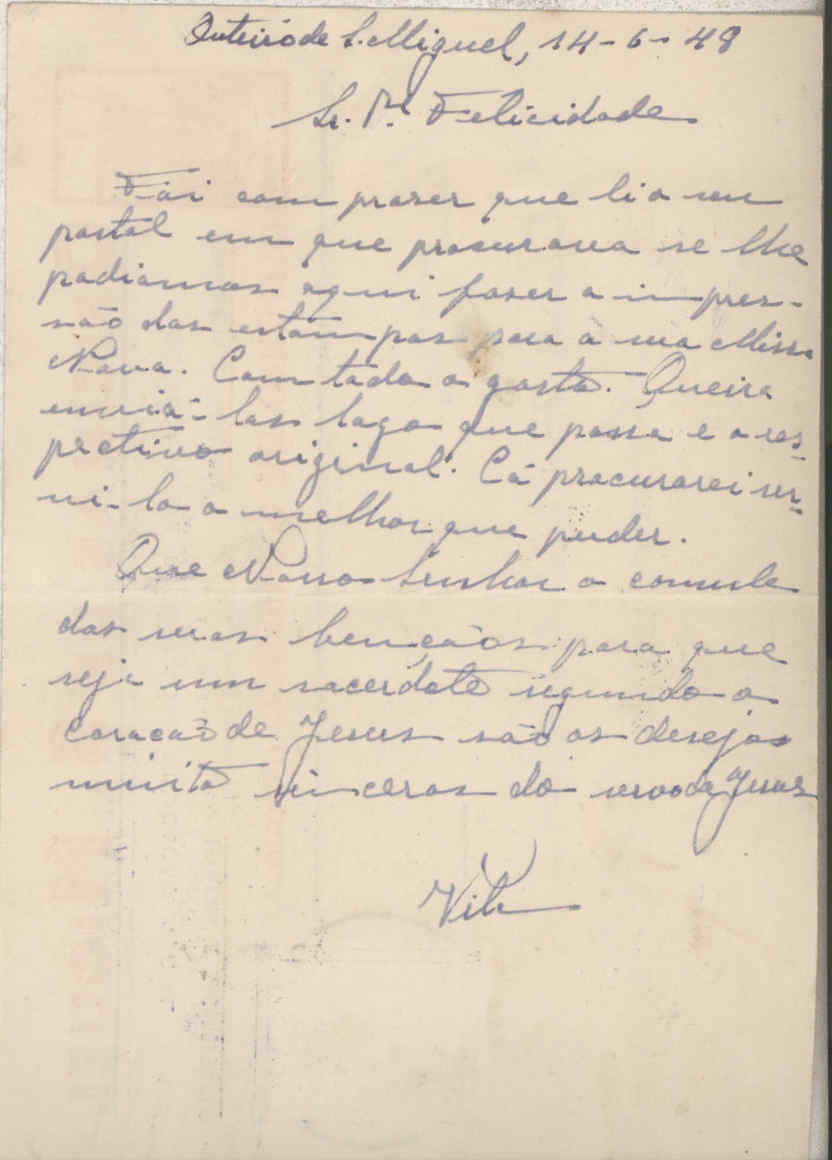 Outeiro de S. Miguel, 14-6-48
Sr. P.e Felicidade
Foi com prazer que li o seu
postal em que procurava se lhe
podiamos aqui fazer a impres-
são das estampas para a sua Missa
Nova. Com todo o gosto. Queira
enviá-las logo que possa e o res-
pectivo original. Cá procurarei ser-
vi-lo o melhor que puder.
Que Nosso Senhor o cumule
das suas bençãos para que
seja um sacerdote segundo o
Coração de Jesus são os desejos
muito sinceros do servo de Jesus